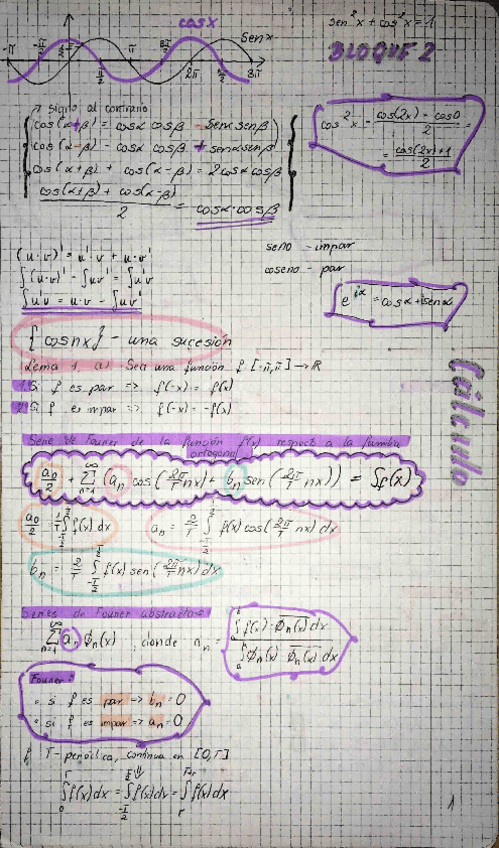 cos x
Sen x
sen²x + cos²x = 1
BLOQUE 2
-π -π/2 π/2 2π 3π
↗ signo al contrario
cos(α+β) = cosα cosβ - senα senβ
cos(α-β) = cosα cosβ + senα senβ
cos(α+β) + cos(α-β) = 2cosα cosβ
(cos(α+β) + cos(α-β))/2 = cosα·cosβ
cos²x = (cos(2x) - cos0)/2 =
= (cos(2x)+1)/2
seno - impar
coseno - par
(u·v)' = u'·v + u·v'
∫(u·v)' - ∫uv' = ∫u'v
∫u'v = u·v - ∫uv'
e^{iα} = cosα + i senα
{cos nx} - una sucesión
Lema 1. (a) Sea una función f: [-π,π] → ℝ
1) Si f es par => f(-x) = f(x)
2) Si f es impar => f(-x) = -f(x)
Cálculo
Serie de Fourier de la función f(x) respecto a la familia
ortogonal
a₀/2 + ∑_{n=1}^{∞} (aₙ cos(2π/T nx) + bₙ sen(2π/T nx)) = Sf(x)
a₀/2 = 1/T ∫_{-T/2}^{T/2} f(x) dx
aₙ = 2/T ∫_{-T/2}^{T/2} f(x) cos(2π/T nx) dx
bₙ = 2/T ∫_{-T/2}^{T/2} f(x) sen(2π/T nx) dx
Series de Fourier abstractas
∑_{n=1}^{∞} aₙ ϕₙ(x), donde aₙ = ∫f(x)·ϕₙ(x)dx / ∫ϕₙ(x) ϕₙ(x)dx
Fourier:
• si f es par => bₙ = 0
• si f es impar => aₙ = 0
f T-periódica, continua en [0,T]
∫₀^T f(x)dx = ∫_{-T/2}^{T/2} f(x)dx = ∫_r^{T+r} f(x)dx
1